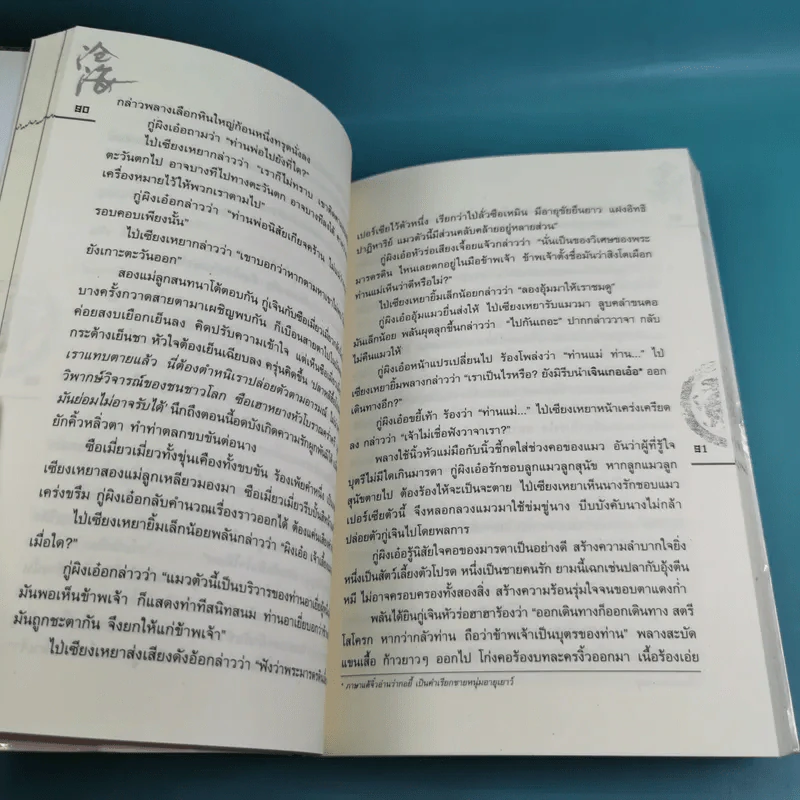 沧海
90
กล่าวพลางเลือกหินใหญ่ก้อนหนึ่งทรุดนั่งลง
กู่ผิงเอ๋อถามว่า "ท่านพ่อไปยังที่ใด?"
ไป่เซียงเหยากล่าวว่า "เราก็ไม่ทราบ
ตะวันตกไป อาจบางทีไปทางตะวันตก อาจบางที
เครื่องหมายไว้ให้พวกเราตามไป"
กู่ผิงเอ๋อกล่าวว่า "ท่านพ่อนิสัยเกียจคร้าน
รอบคอบเพียงนั้น"
ไป่เซียงเหยากล่าวว่า "เขาบอกว่าหากตามหา
ยังเกาะตะวันออก"
สองแม่ลูกสนทนาโต้ตอบกัน กู่เจินกับซือเมี่ยวเมี่ยว
บางครั้งกวาดสายตามาเผชิญพบกัน ก็เบือนสายตา
ค่อยสงบเยือกเย็นลง คิดปรับความเข้าใจ แต่เห็น
กระด้างเย็นชา หัวใจต้องเย็นเฉียบลง ครุ่นคิดขึ้น
เราแทบตายแล้ว นี่ต้องตำหนิเราปล่อยตัวตามอารมณ์
วิพากษ์วิจารณ์ของชนชาวโลก ซือเฮาหยางหัวโบราณ
มันย่อมไม่อาจรับได้' นึกถึงตอนนี้อดบังเกิดความรักผูกพัน
ยักคิ้วหลิ่วตา ทำท่าตลกขบขันต่อนาง
ซือเมี่ยวเมี่ยวทั้งขุ่นเคืองทั้งขบขัน ร้องเพ้ยคำหนึ่ง
เซียงเหยาสองแม่ลูกเหลียวมองมา ซือเมี่ยวเมี่ยวรีบปั้น
เคร่งขรึม กู่ผิงเอ๋อกลับคำนวณเรื่องราวออกได้
ไป่เซียงเหยายิ้มเล็กน้อยพลันกล่าวว่า "ผิงเอ๋อ
เมื่อใด?"
กู่ผิงเอ๋อกล่าวว่า "แมวตัวนี้เป็นบริวารของท่านอาเยี่ย
มันพอเห็นข้าพเจ้า ก็แสดงท่าทีสนิทสนม ท่านอาเยี่ยบอกว่า
มันถูกชะตากัน จึงยกให้แก่ข้าพเจ้า"
ไป่เซียงเหยาส่งเสียงดังอ้อกล่าวว่า "ฟังว่าพระมารดา
เปอร์เซียไว้ตัวหนึ่ง เรียกว่าไปลั่วซือเหมิน มีอายุขัยยืนยาว แฝงอิทธิ
ปาฏิหาริย์ แมวตัวนี้มีส่วนคลับคล้ายอยู่หลายส่วน"
กู่ผิงเอ๋อหัวร่อเสียงเจื้อยแจ้วกล่าวว่า "นั่นเป็นของวิเศษของพระ
มารดรดีน ไหนเลยตกอยู่ในมือข้าพเจ้า ข้าพเจ้าตั้งชื่อมันว่าสิงโตเผือก
ท่านแม่เห็นว่าดีหรือไม่?"
ไป่เซียงเหยายิ้มเล็กน้อยกล่าวว่า "ลองอุ้มมาให้เราชมดู"
กู่ผิงเอ๋ออุ้มแมวยื่นส่งให้ ไป่เซียงเหยารับแมวมา ลูบคลำขนคอ
มันเล็กน้อย พลันผุดลุกขึ้นกล่าวว่า "ไปกันเถอะ" ปากกล่าววาจา กลับ
ไม่คืนแมวให้
กู่ผิงเอ๋อหน้าแปรเปลี่ยนไป ร้องโพล่งว่า "ท่านแม่ ท่าน..." ไป่
เซียงเหยายิ้มพลางกล่าวว่า "เราเป็นไรหรือ? ยังมิรีบนำเจินเกอเอ๋อ* ออก
เดินทางอีก?"
กู่ผิงเอ๋อขยี้เท้า ร้องว่า "ท่านแม่..." ไป่เซียงเหยาหน้าเคร่งเครียด
ลง กล่าวว่า "เจ้าไม่เชื่อฟังวาจาเรา?"
พลางใช้นิ้วหัวแม่มือกับนิ้วชี้กดใส่ช่วงคอของแมว อันว่าผู้ที่รู้ใจ
บุตรีไม่มีใดเกินมารดา กู่ผิงเอ๋อรักชอบลูกแมวลูกสุนัข หากลูกแมวลูก
สุนัขตายไป ต้องร้องไห้จะเป็นจะตาย ไป่เซียงเหยาเห็นนางรักชอบแมว
เปอร์เซียตัวนี้ จึงหลอกลวงแมวมาใช้ข่มขู่นาง บีบบังคับนางไม่กล้า
ปล่อยตัวกู่เจินไปโดยพลการ
กู่ผิงเอ๋อรู้นิสัยใจคอของมารดาเป็นอย่างดี สร้างความลำบากใจยิ่ง
หนึ่งเป็นสัตว์เลี้ยงตัวโปรด หนึ่งเป็นชายคนรัก ยามนี้เฉกเช่นปลากับอุ้งตีน
หมี ไม่อาจครอบครองทั้งสองสิ่ง สร้างความร้อนรุ่มใจจนขอบตาแดงก่ำ
พลันได้ยินกู่เจินหัวร่อฮาฮาร้องว่า "ออกเดินทางก็ออกเดินทาง สตรี
โสโครก หากว่ากลัวท่าน ถือว่าข้าพเจ้าเป็นบุตรของท่าน" พลางสะบัด
แขนเสื้อ ก้าวยาวๆ ออกไป โก่งคอร้องบทละครงิ้วออกมา เนื้อร้องเอ่ย
* ภาษาแต้จิ๋วอ่านว่ากอยี้ เป็นคำเรียกชายหนุ่มอายุเยาว์
91